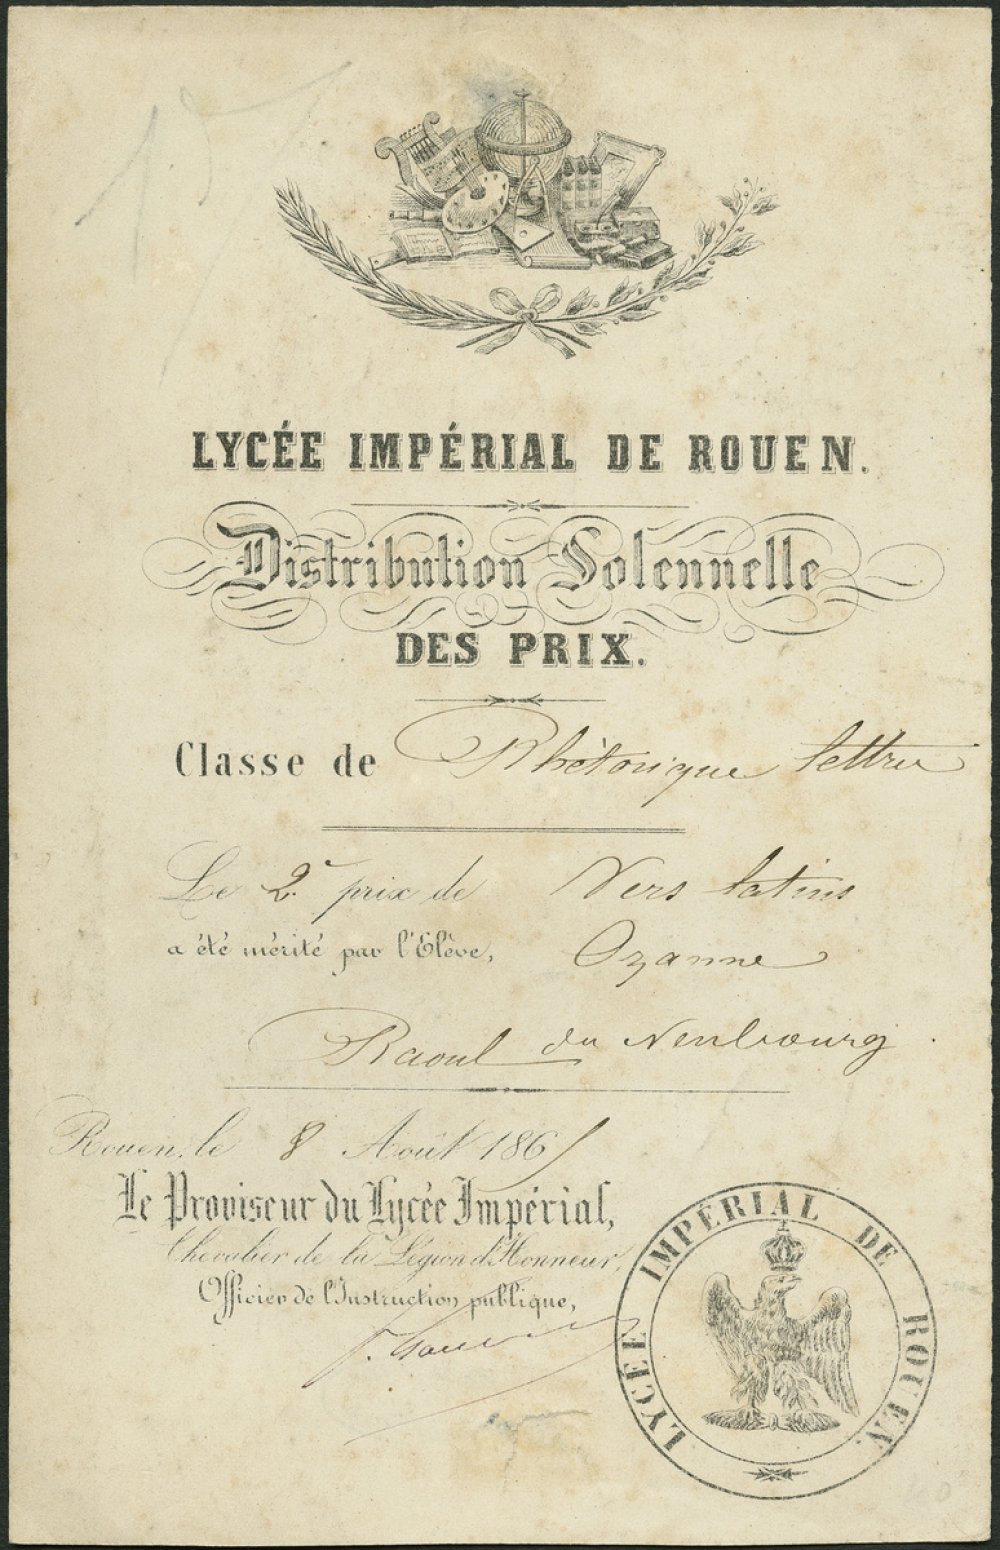 LYCÉE IMPÉRIAL DE ROUEN.
Distribution Solennelle
DES PRIX.
Classe de Rhétorique lettres
Le 2e prix de Vers latins
a été mérité par l'Elève, Ozanne
Raoul du Neubourg.
Rouen, le 8 Août 1865
Le Proviseur du Lycée Impérial,
Chevalier de la Légion d'Honneur,
Officier de l'Instruction publique,
LYCÉE IMPÉRIAL DE ROUEN.